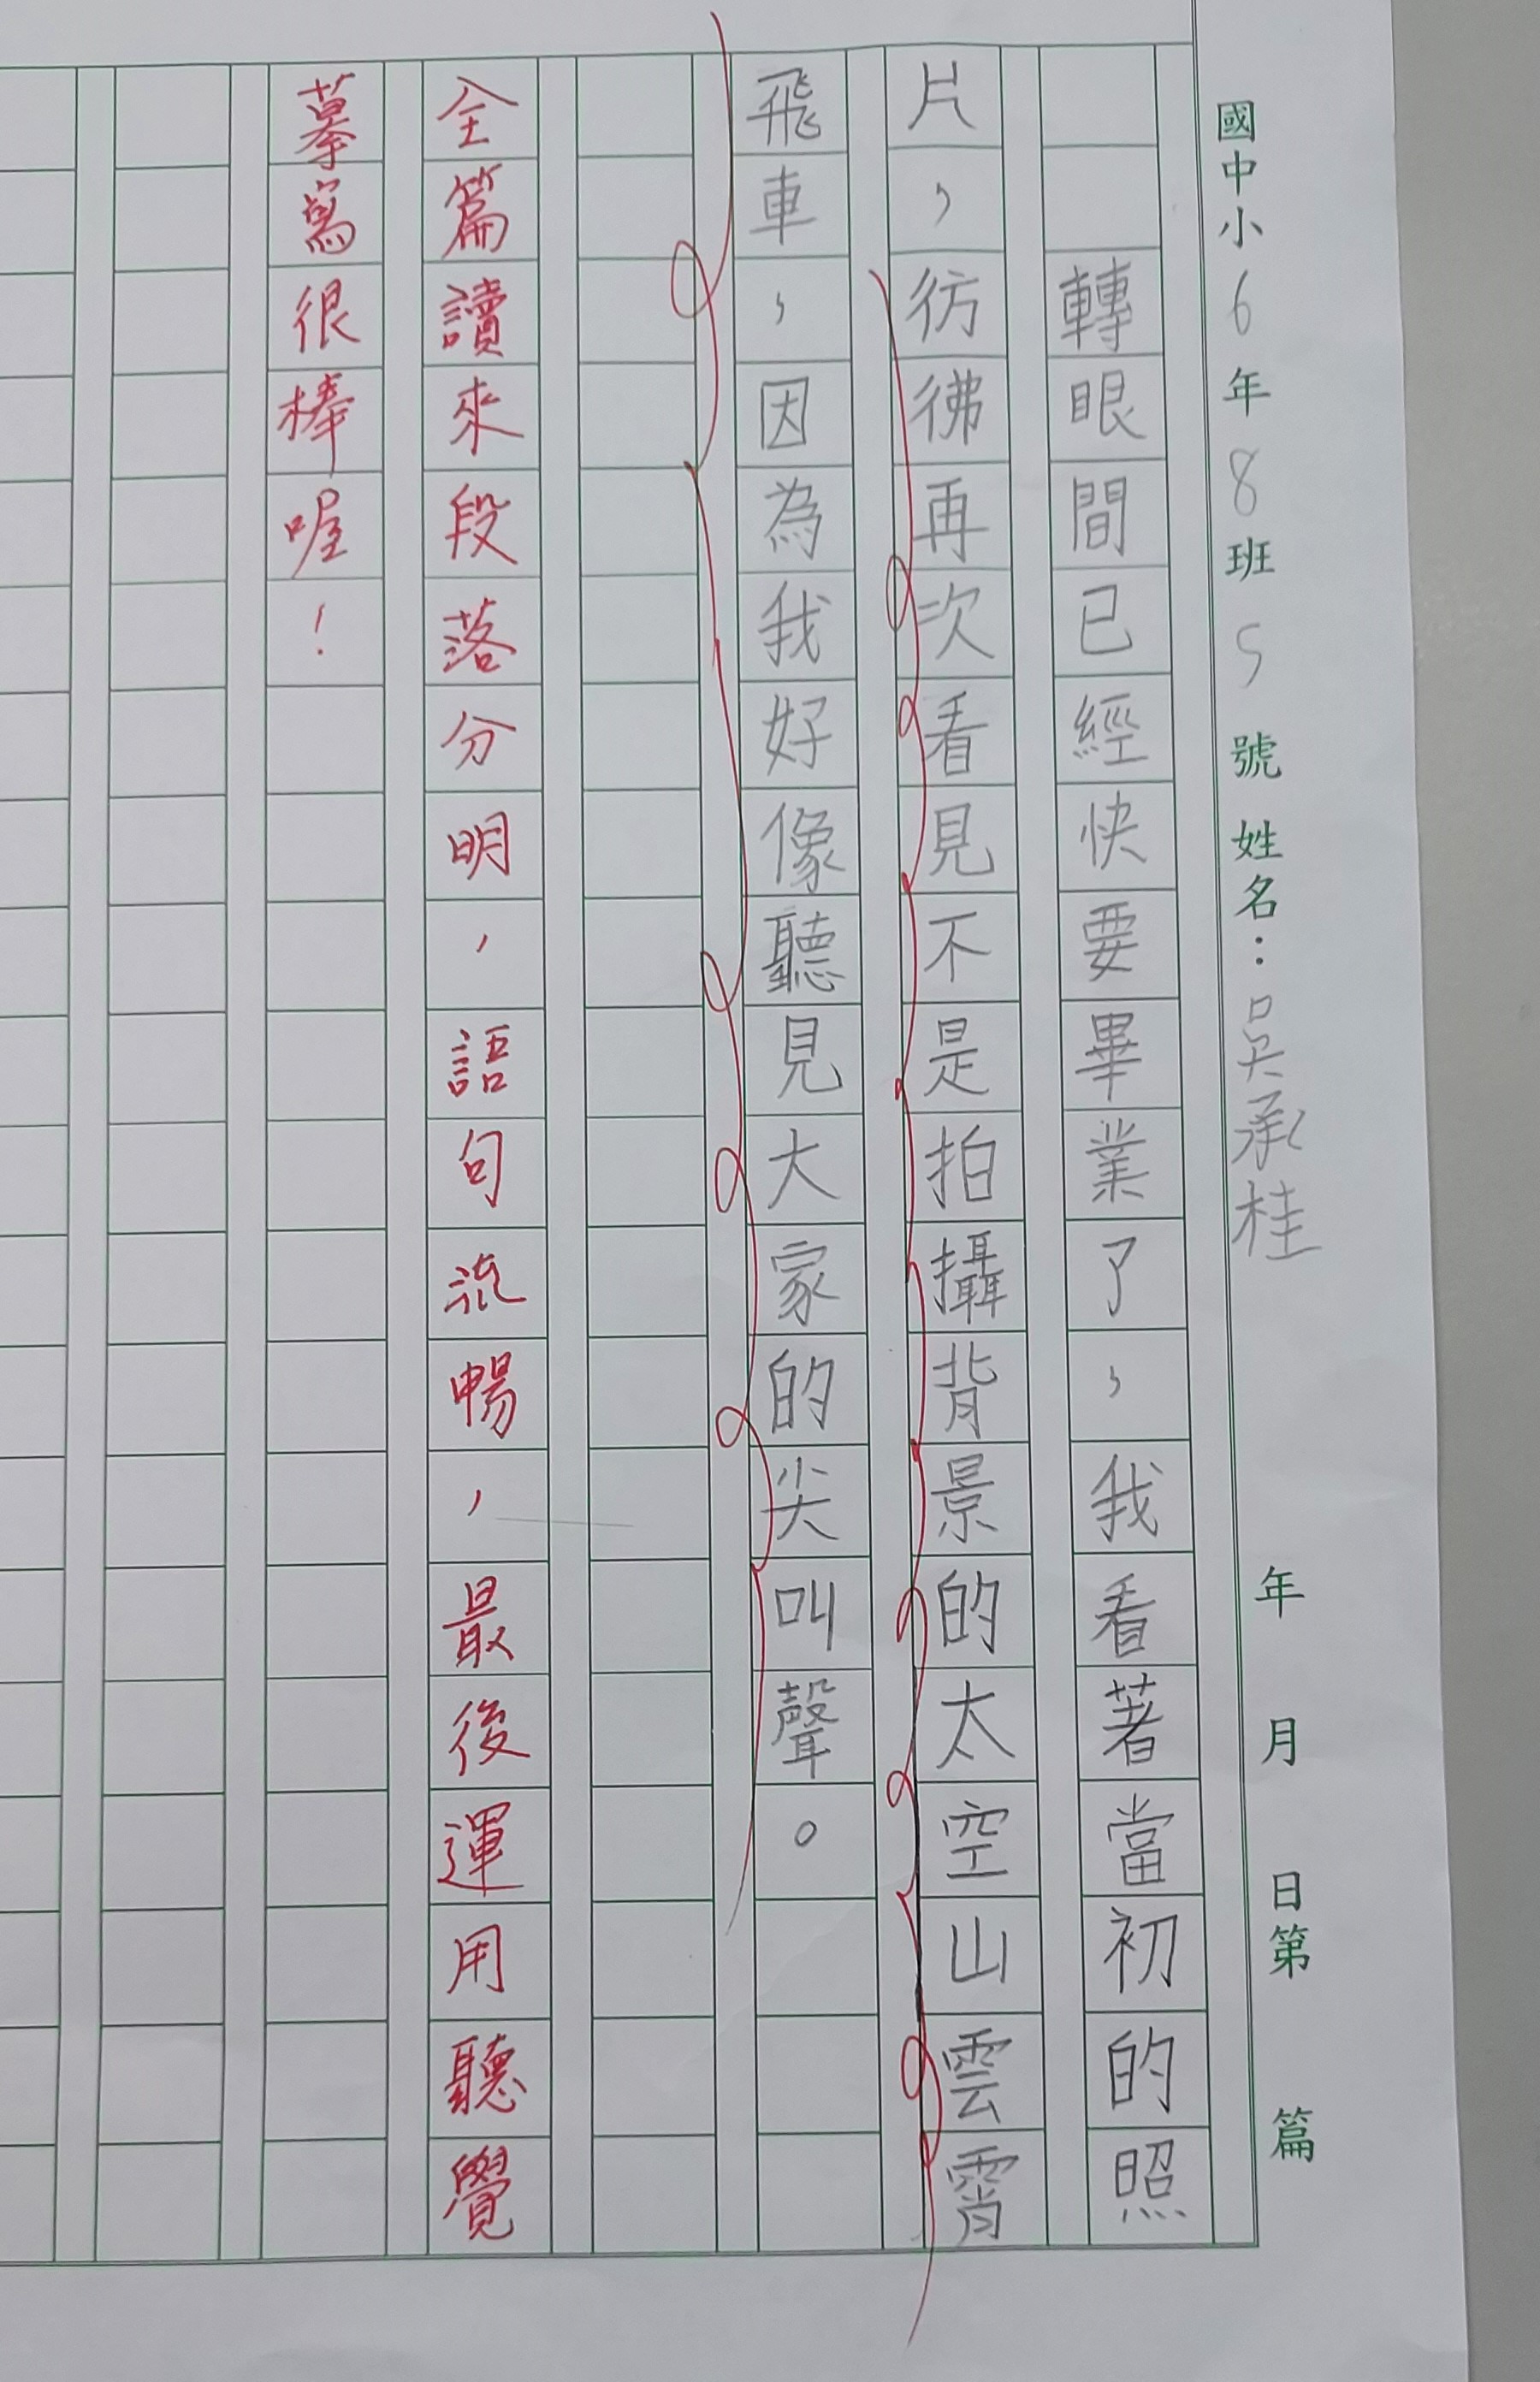 國中小6年8班5號姓名：吳承桂 年月日第篇
轉眼間已經快要畢業了，我看著當初的照
片，彷彿再次看見不是拍攝背景的太空山雲霄
飛車，因為我好像聽見大家的尖叫聲。
全篇讀來段落分明，語句流暢，最後運用聽覺
摹寫很棒喔！